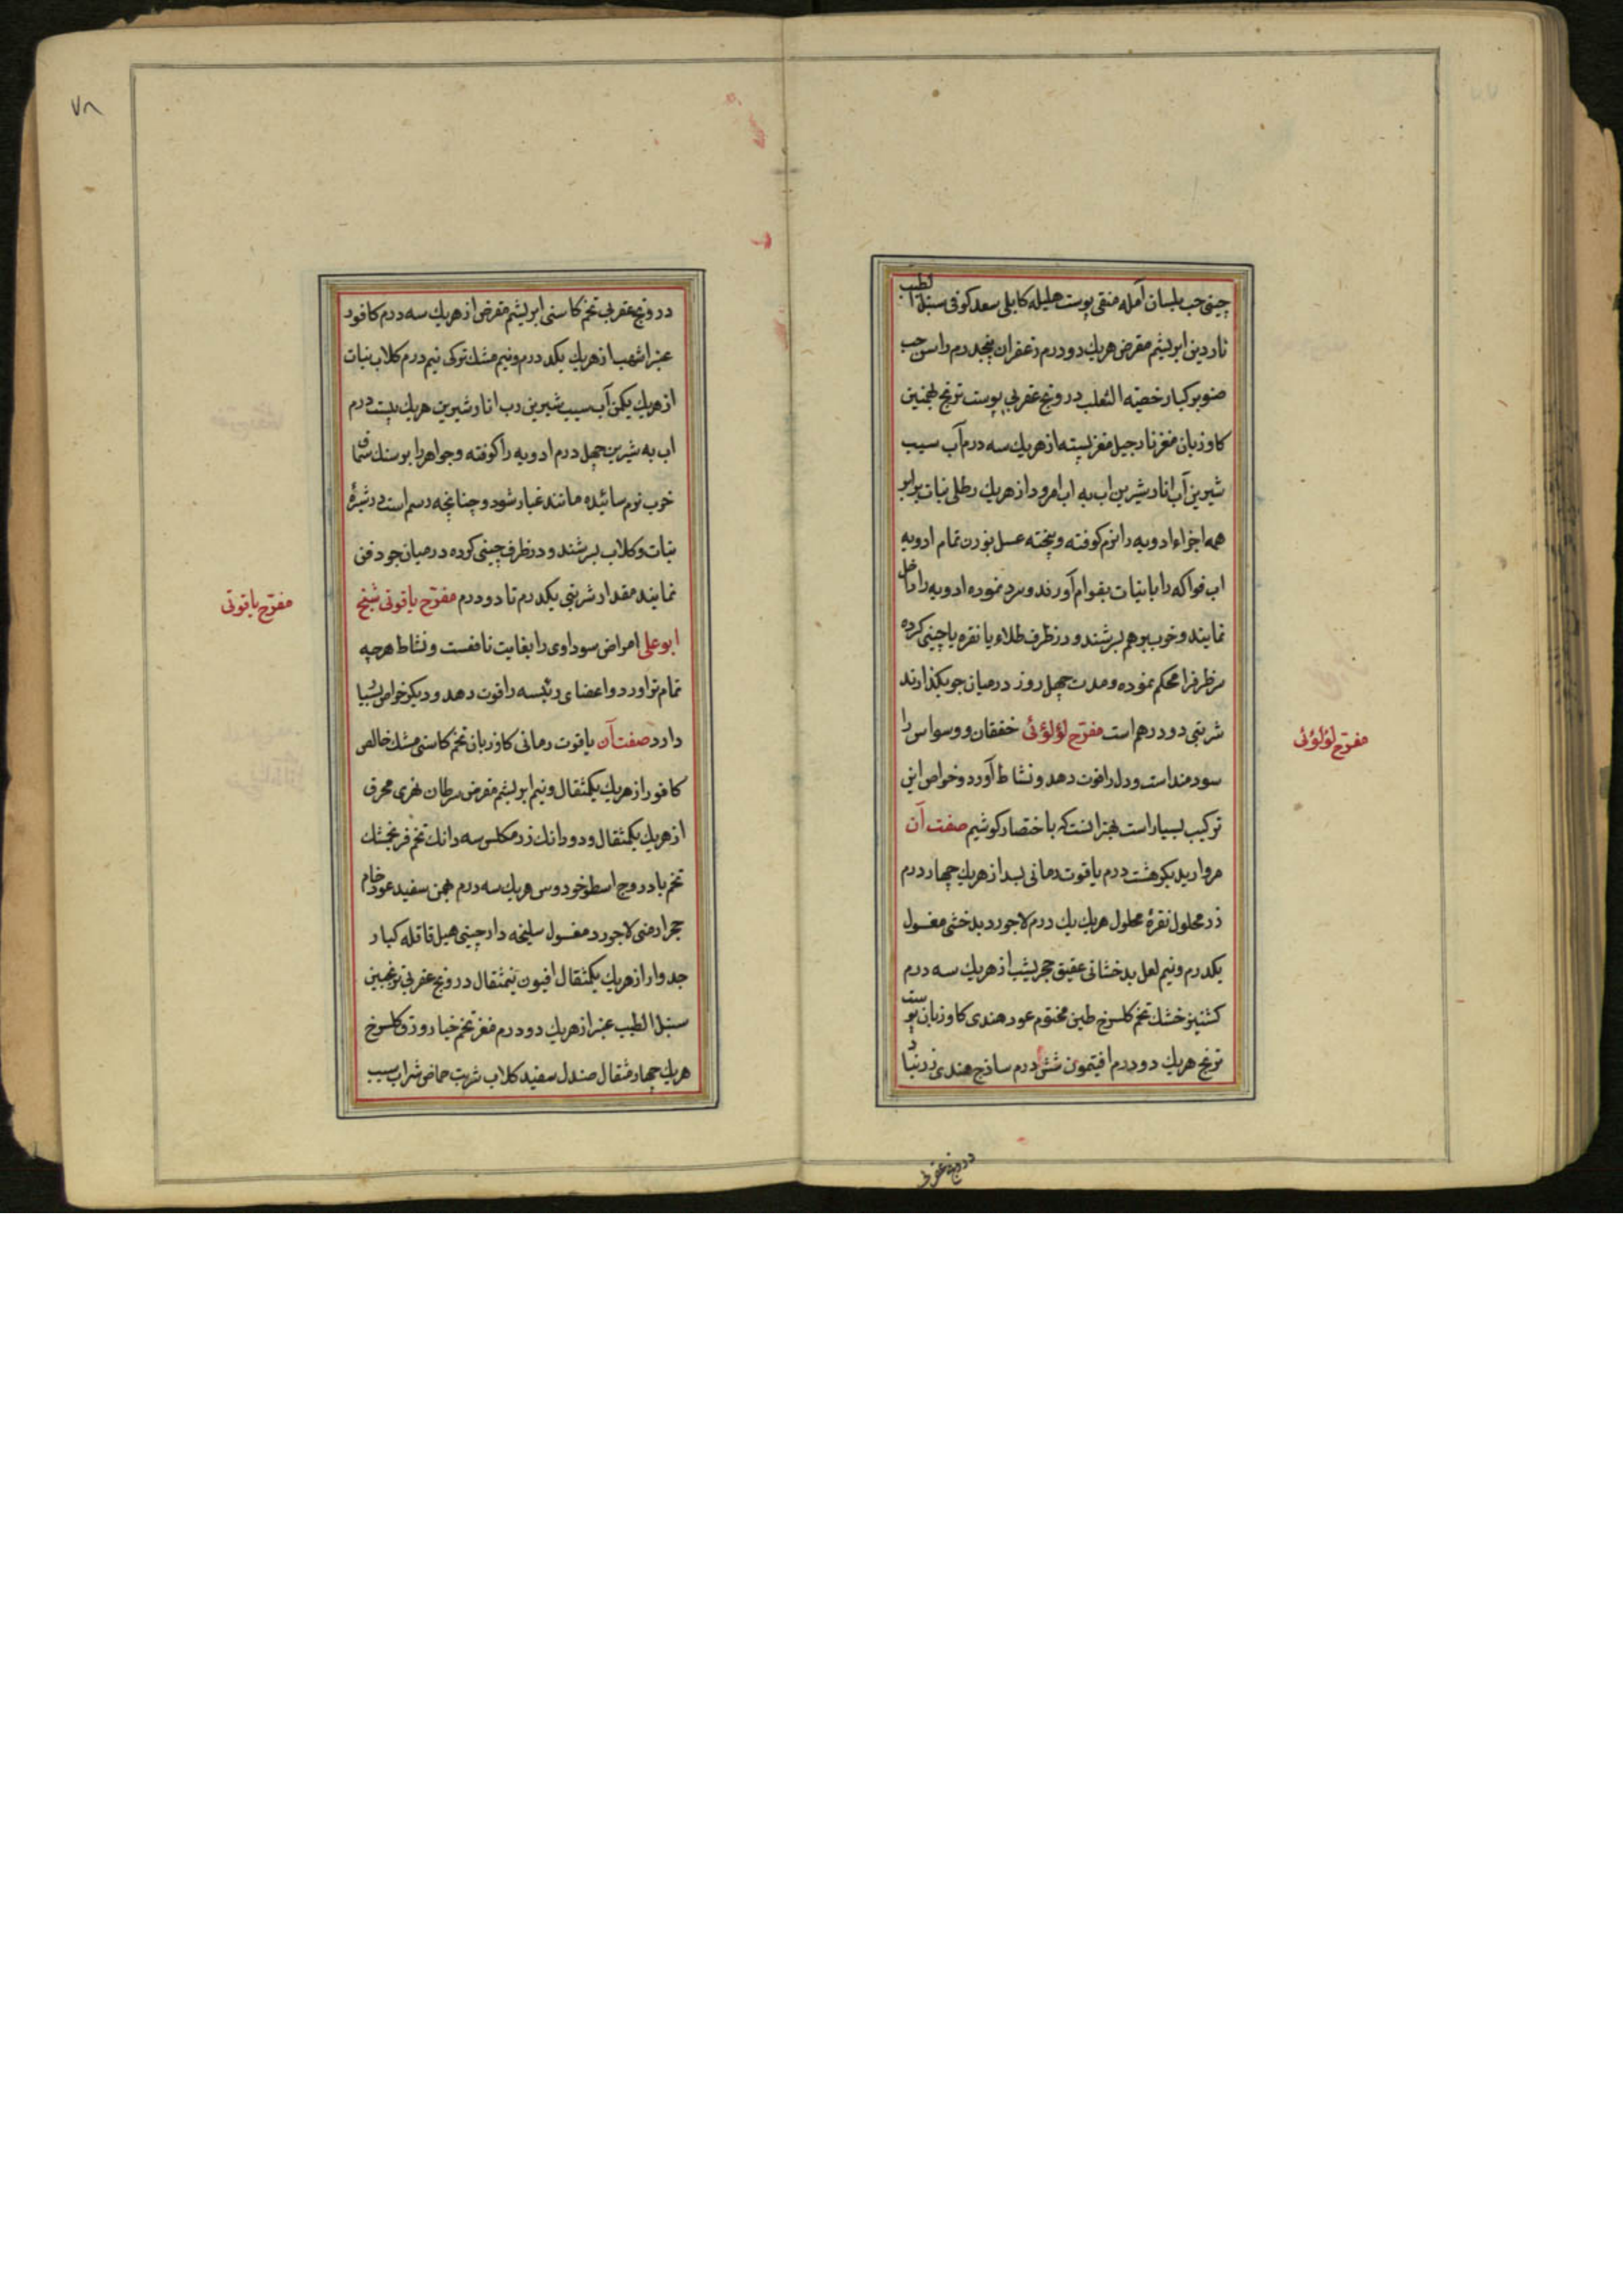 چینی حب بلسان آمله منقی پوست هلیله کابلی سعد کوفی سنبل الطیب
ناردین ابریشم مقرض هریك دو درم زعفران پنجدرم راسن حب
صنوبر کبار خصیة الثعلب درونج عقربی پوست ترنج
کاوزبان مغز نارجیل مغز پسته از هریك سه درم آب سیب
شیرین آب انار شیرین اب به اب امرود از هریك رطلی نبات برابر
همه اجزاء ادویه را نرم کوفته و پخته عسل بوزن تمام ادویه
اب فواکه را با نبات بقوام آورند و سرد نموده ادویه را داخل
نمایند و خوب برهم بسرشند و در ظرف طلاء یا نقره یا چینی کرده
سر ظرف را محکم نموده و مدت چهل روز در میان جو بگذارند
شربتی دو درهم است مفرّح لؤلؤئی خفقان و وسواس را
مفرّح لؤلؤئی
سودمند است و دل را قوت دهد و نشاط آورد و خواص این
ترکیب بسیار است بهتر انست که باختصار کوشیم صفت آن
مروارید بکر هشت درم یاقوت رمانی بسد از هریك چهار درم
زر محلول نقرهٔ محلول هریك یك درم لاجورد بدخشی مغسول
یکدرم و نیم لعل بدخشانی عقیق حجر یشب از هریك سه درم
کشنیز خشك تخم کلسرخ طین مختوم عود هندی کاوزبان پوست
ترنج هریك دو درم افتیمون شش درم ساذج هندی زرنباد
درونج عقربی
۷۸
درونج عقربی تخم کاسنی ابریشم مقرض از هریك سه درم کافور
عنبر اشهب از هریك یکدرم و نیم مشك ترکی نیم درم کلاب نبات
از هریك یکمن آب سیب شیرین رب انار شیرین هریك بیست درم
اب به شیرین چهل درم ادویه را کوفته و جواهر را بر سنك سماق
خوب نرم سائیده مانند غبار شود و چنانچه رسم است در شیرهٔ
نبات و کلاب بسرشند و در ظرف چینی کرده در میان جو دفن
نمایند مقدار شربتی یکدرم تا دو درم مفرّح یاقوتی شیخ
مفرّح یاقوتی
ابو علی امراض سوداوی را بغایت نافعست و نشاط هرچه
تمامتر اورد و اعضای رئیسه را قوت دهد و دیکر خواص بسیار
دارد صفت آن یاقوت رمانی کاوزبان تخم کاسنی مشك خالص
کافور از هریك یکمثقال و نیم ابریشم مقرض سرطان نهری محرق
از هریك یکمثقال و دو دانك زر مکلس سه دانك تخم فرنجمشك
تخم بادروج اسطوخودوس هریك سه درم بهمن سفید عود خام
حجر ارمنی لاجورد مغسول سلیخه دارچینی هیل قاقله کبار
جدوار از هریك یکمثقال افیون نیمثقال درونج عقربی ترنجبین
سنبل الطیب عنبر از هریك دو درم مغز تخم خیار ورق کلسرخ
هریك چهار مثقال صندل سفید کلاب شربت حماض شراب سیب